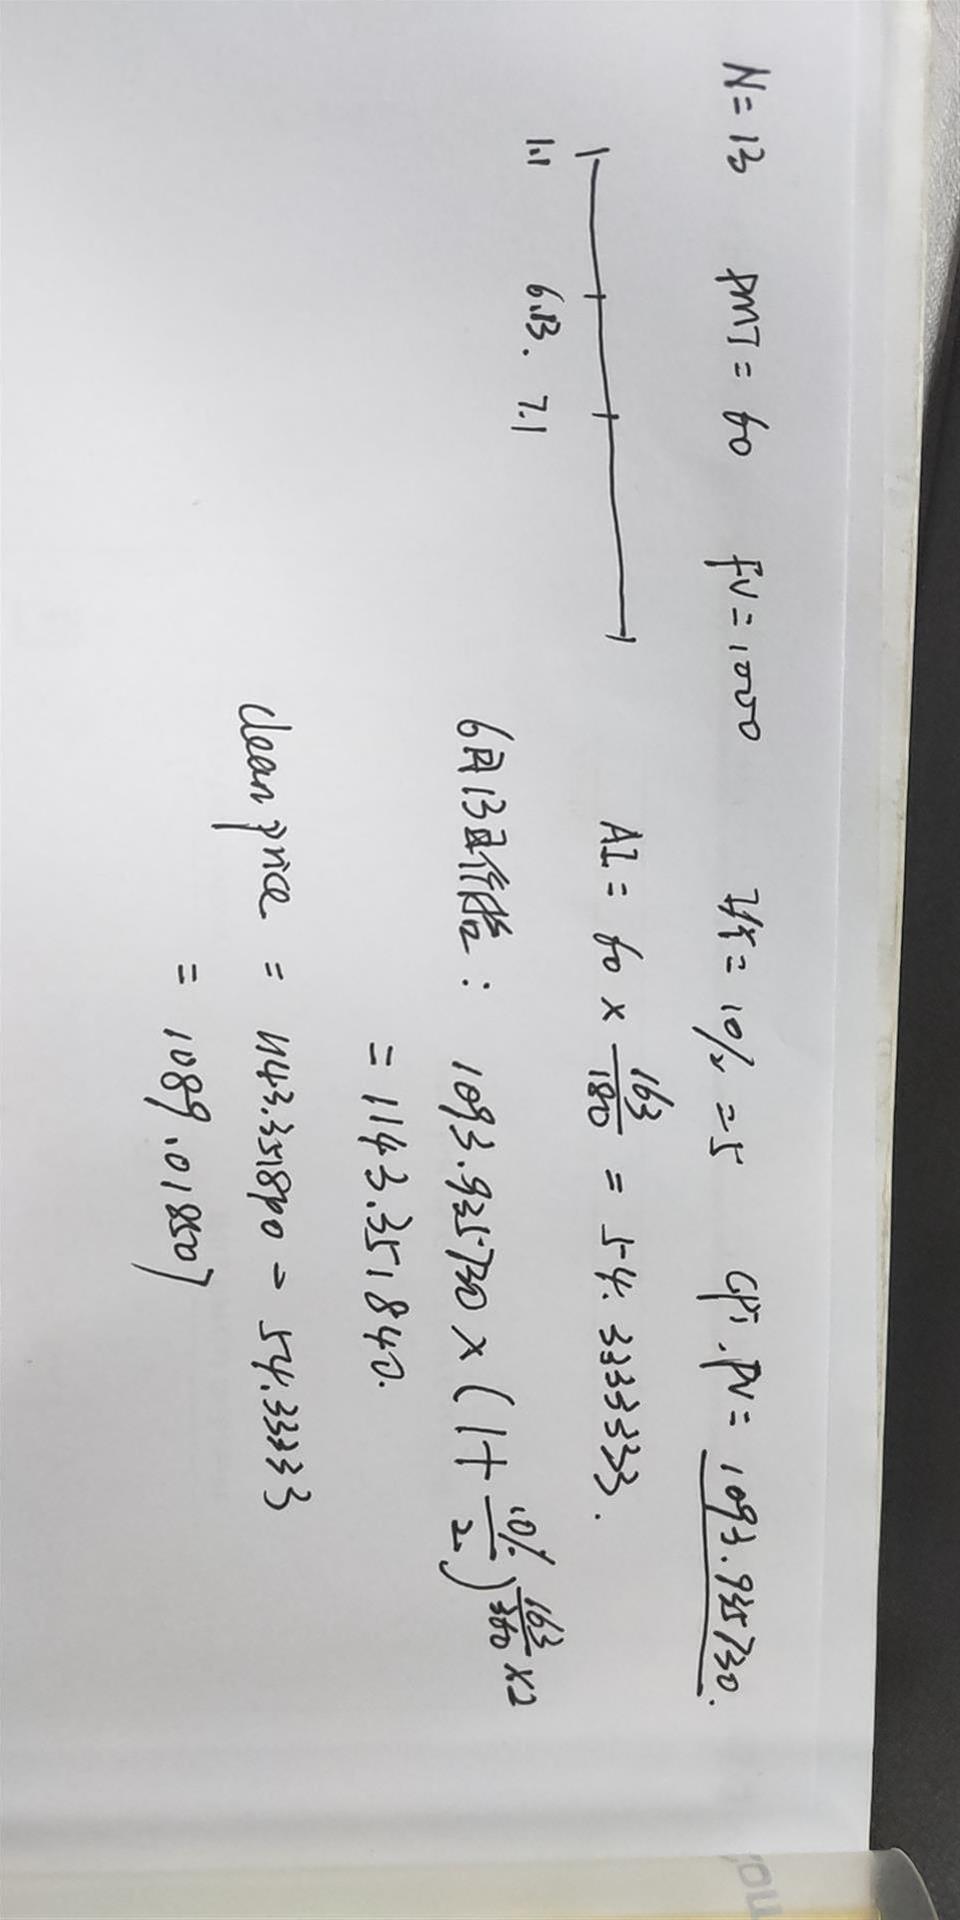 N=13 PMT=60 FV=1000 I/Y=10/2=5 CPT.PV=1093.935730.
1.1 6.13. 7.1
AI=60×163/180=54.3333333.
6月13日价格: 1093.935730×(1+10%/2)^(163/360×2)
=1143.351840.
clean price = 1143.351840-54.33333
= 1089.018507
you